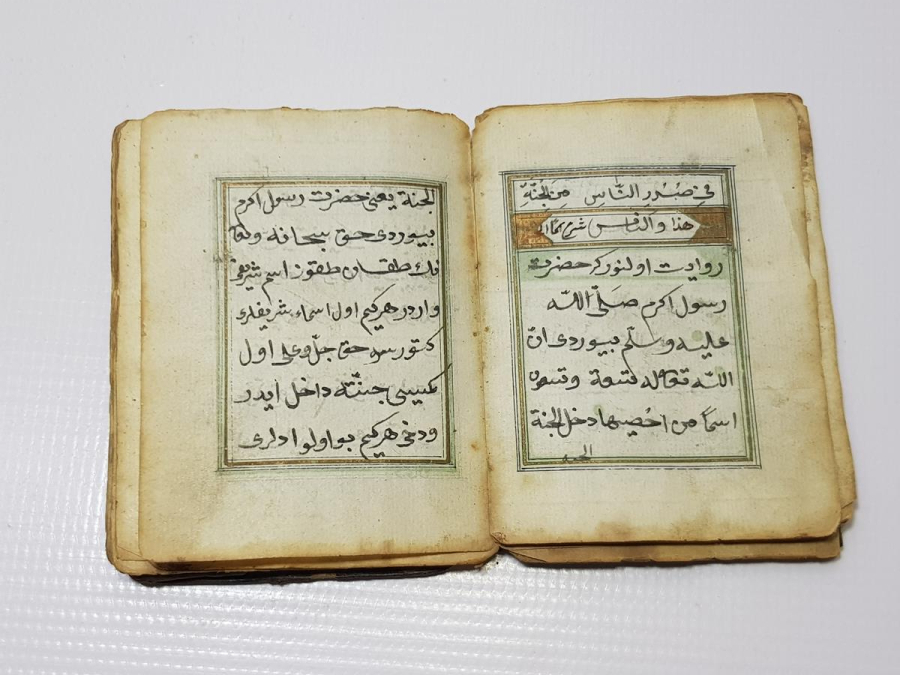 في صُدُورِ النَّاسِ مِنَ الْجِنَّةِ
والناس هذا شرح
روايت اولنور كه حضرت
رسول اكرم صَلّى اللّٰه
عليه وسلّم بيوردى انّ
اللّه تعالى تسعة وتسعين
اسمًا من احْصيها دخل الجنة
الجنة
الجنة يعنى حضرت رسول اكرم
بيوردى حق سبحانه وتعا
نك طقسان طقوز اسم شريفى
واردر هركيم اول اسماء شريفلرى
كتورسه حق جلّ وعلى اول
كمسيى جنّته داخل ايدر
ودخى هركيم بو اولو ادلرى